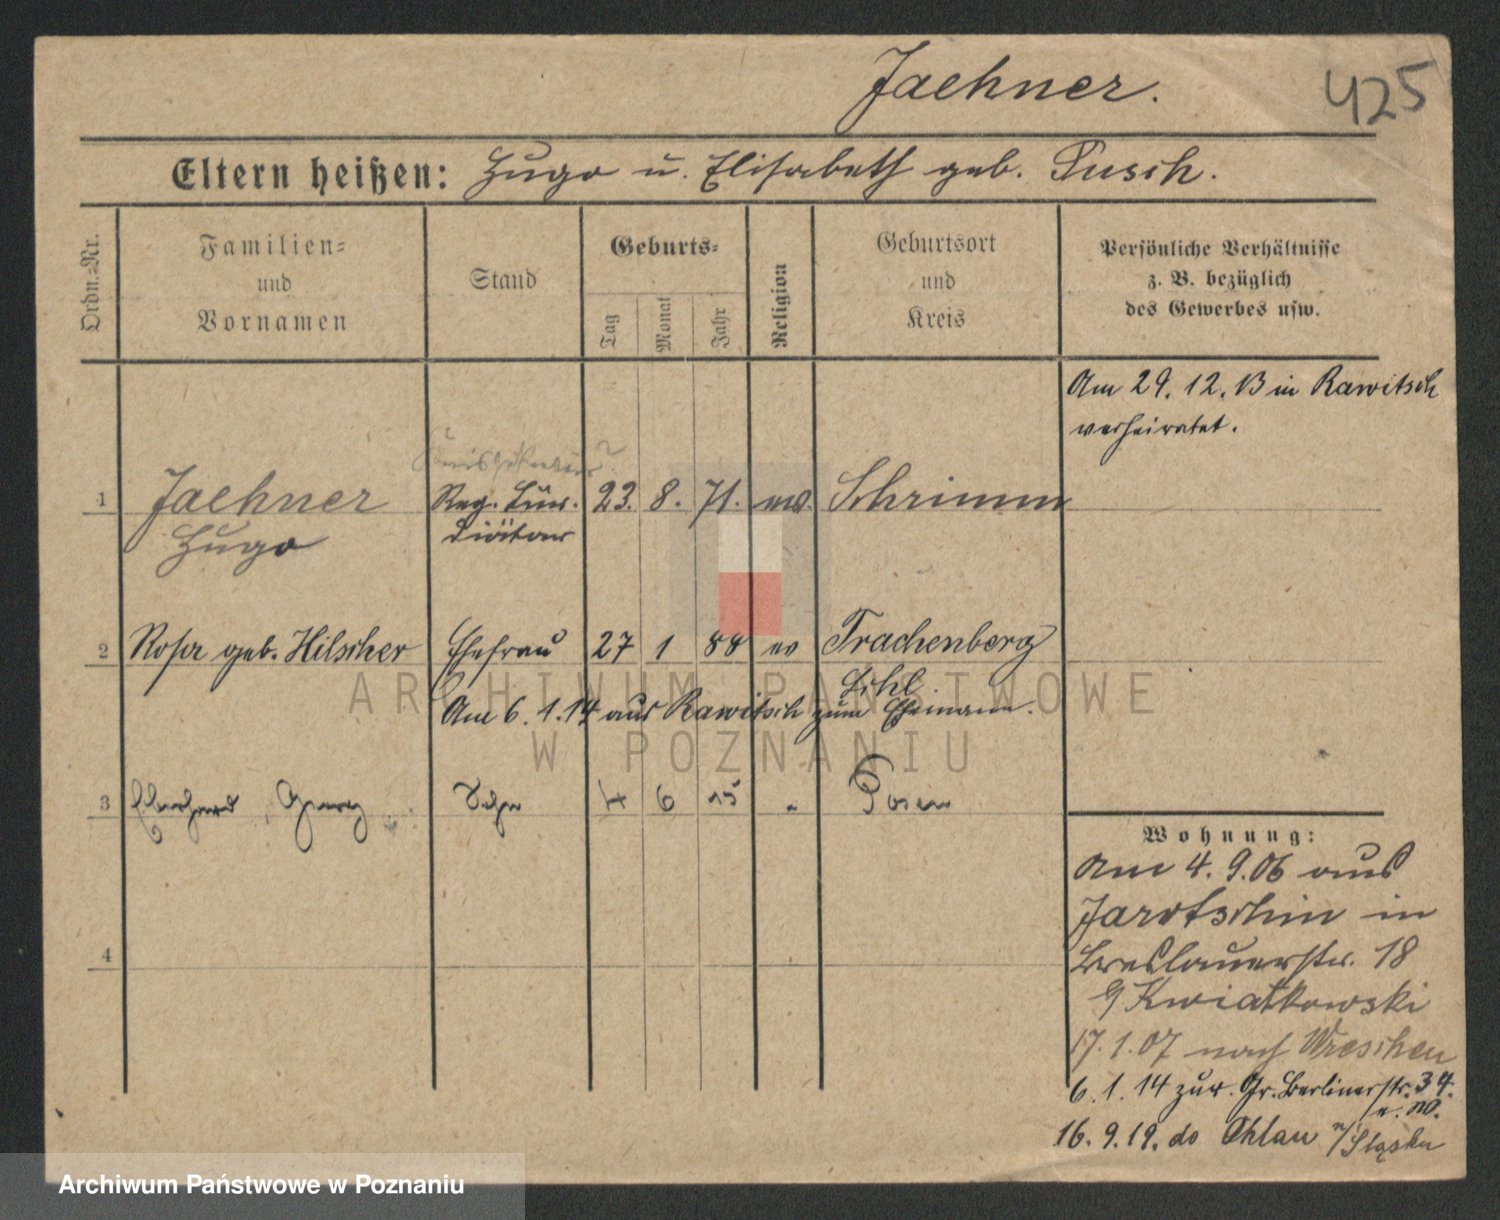 Jaehner.
425
Eltern heißen: Hugo u. Elisabeth geb. Pusch.
Ordn.=Nr.
Familien=
und
Vornamen
Stand
Geburts=
Tag
Monat
Jahr
Religion
Geburtsort
und
Kreis
Persönliche Verhältnisse
z. B. bezüglich
des Gewerbes usw.
Am 29. 12. 13 in Rawitsch
verheiratet.
1 Jaehner Reg. Bür. 23. 8. 71. ev. Schrimm
Hugo Diätar
2 Rosa geb. Hilscher Ehefrau 27 1 88 ev Trachenberg
Am 6. 1. 14 aus Rawitsch zum Ehemann.
3 Georg Sohn 4 6 15 " Posen
4
Wohnung:
Am 4. 9. 06 aus
Jarotschin in
Breslauerstr. 18
Kwiatkowski
17. 1. 07 nach Wreschen
6. 1. 14 zur. Gr. Berlinerstr. 34.
16. 9. 19. do Ohlau n/Sląsku
ARCHIWUM PAŃSTWOWE
W POZNANIU
Archiwum Państwowe w Poznaniu